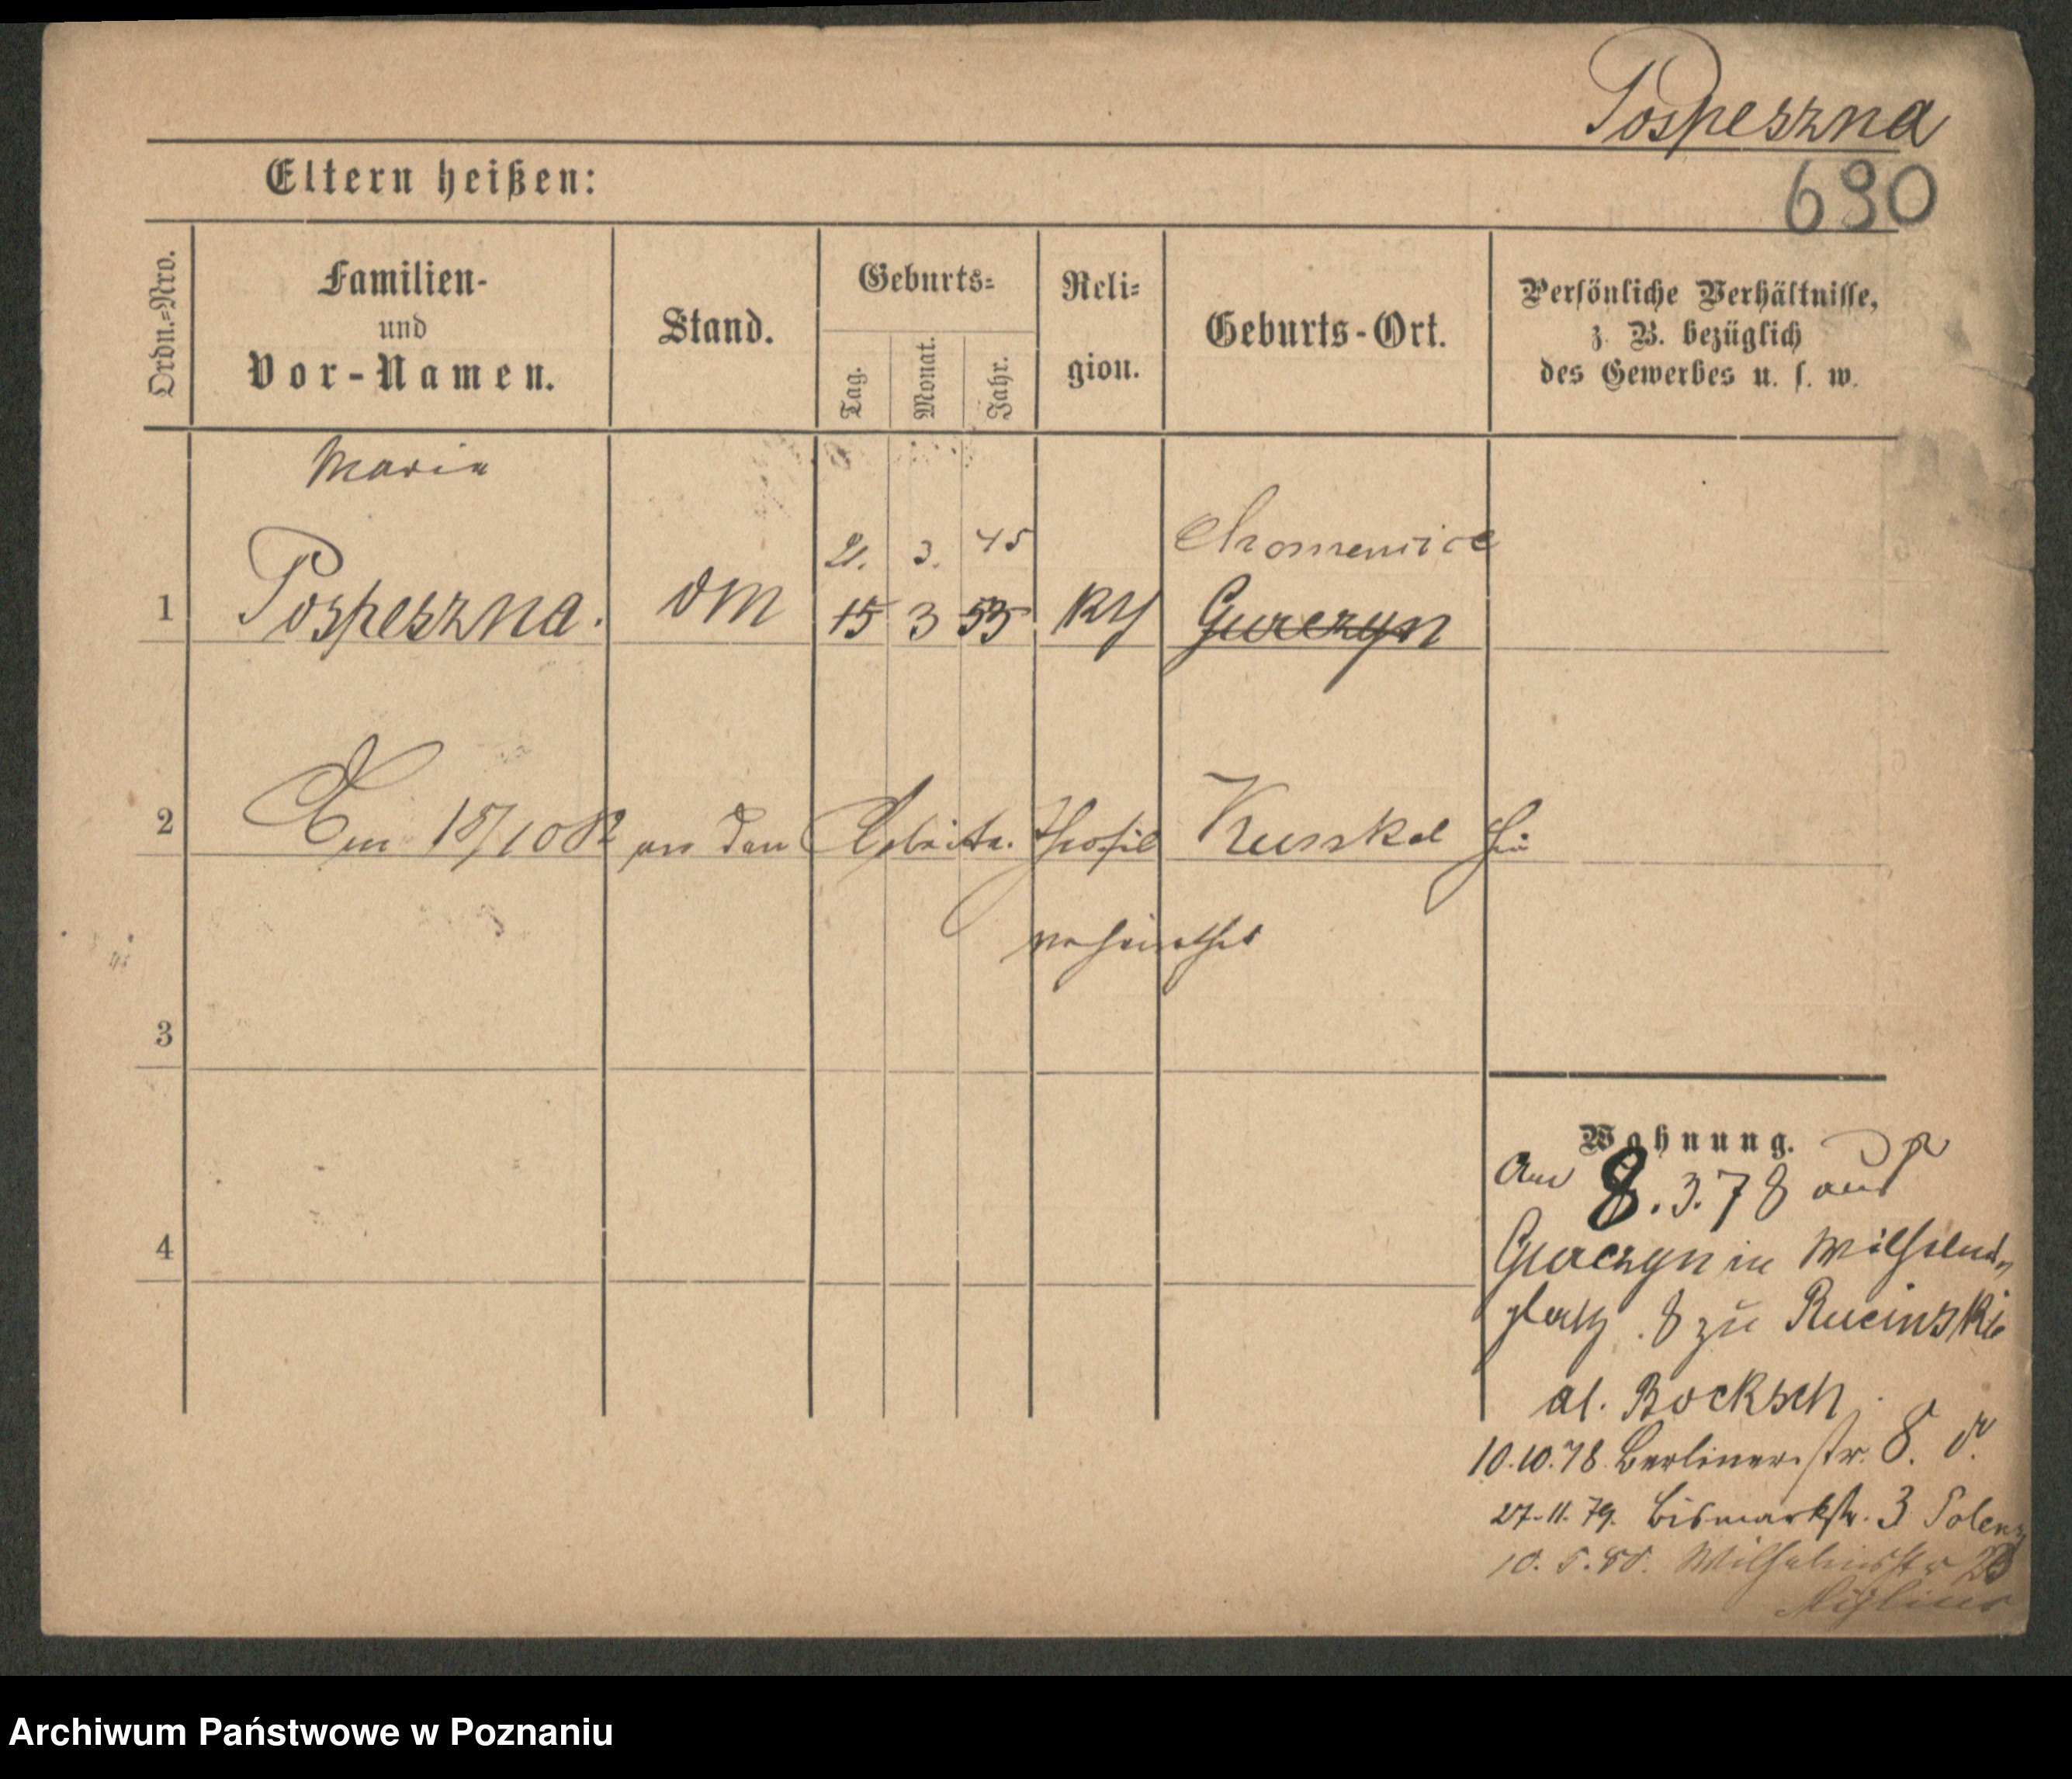 Pospeszna
Eltern heißen:
690
Ordn.=Nro.
Familien-
und
Vor-Namen.
Stand.
Geburts=
Tag.
Monat.
Jahr.
Reli=
gion.
Geburts-Ort.
Persönliche Verhältnisse,
z. B. bezüglich
des Gewerbes u. s. w.
Maria
21. 3. 45 Chomenice
1 Pospeszna. DM 15 3 53 Gurczyn
2 Am 15/10 82 an den Arbeiter Theofil Kuss hie
verheirathet
3
Wohnung.
Am 8.3.78 aus
Gurczyn in Wilhelms
platz 8 zu Rucinski
4
al. Bocksch
10.10.78 Berlinerstr. 8.
27.11.79. Bismarkstr. 3
10. 5. 80. Wilhelmsstr 23
Archiwum Państwowe w Poznaniu